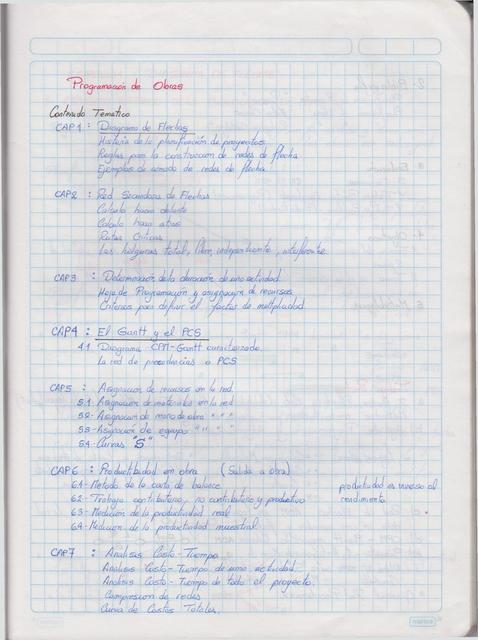 Programación de Obras
Contenido Tematico
CAP1 : Diagrama de Flechas
Historia de la planificación de proyectos
Reglas para la construccion de redes de flecha
Ejemplos de armado de redes de flecha
CAP2 : Red Secundaria de Flechas
Calculo hacia delante
Calculo hacia atras
Rutas Criticas
Las holguras total, libre, independiente, interferente
CAP3 : Determinación de la duración de una actividad
Hoja de Programación y asignacion de recursos
Criterios para definir el factor de multiplicidad
CAP4 : El Gantt y el PCS
4.1 Diagrama CPM-Gantt
La red de precedencias o PCS
CAP5 : Asignacion de recursos en la red
5.1- Asignacion de materiales en la red
5.2- Asignacion de mano de obra " " "
5.3- Asignación de equipo " " "
5.4- Curvas "S"
CAP6 : Productividad en obra (Salida a obra)
6.1- Metodo de la carta de balance
6.2- Trabajo contributorio, no contributorio y productivo
productividad es inverso al
rendimiento
6.3- Medicion de la productividad real
6.4- Medicion de la productividad muestral
CAP7 : Analisis Costo-Tiempo
Analisis Costo-Tiempo de una actividad
Analisis Costo-Tiempo de todo el proyecto
Compresion de redes
Curva de Costos Totales.